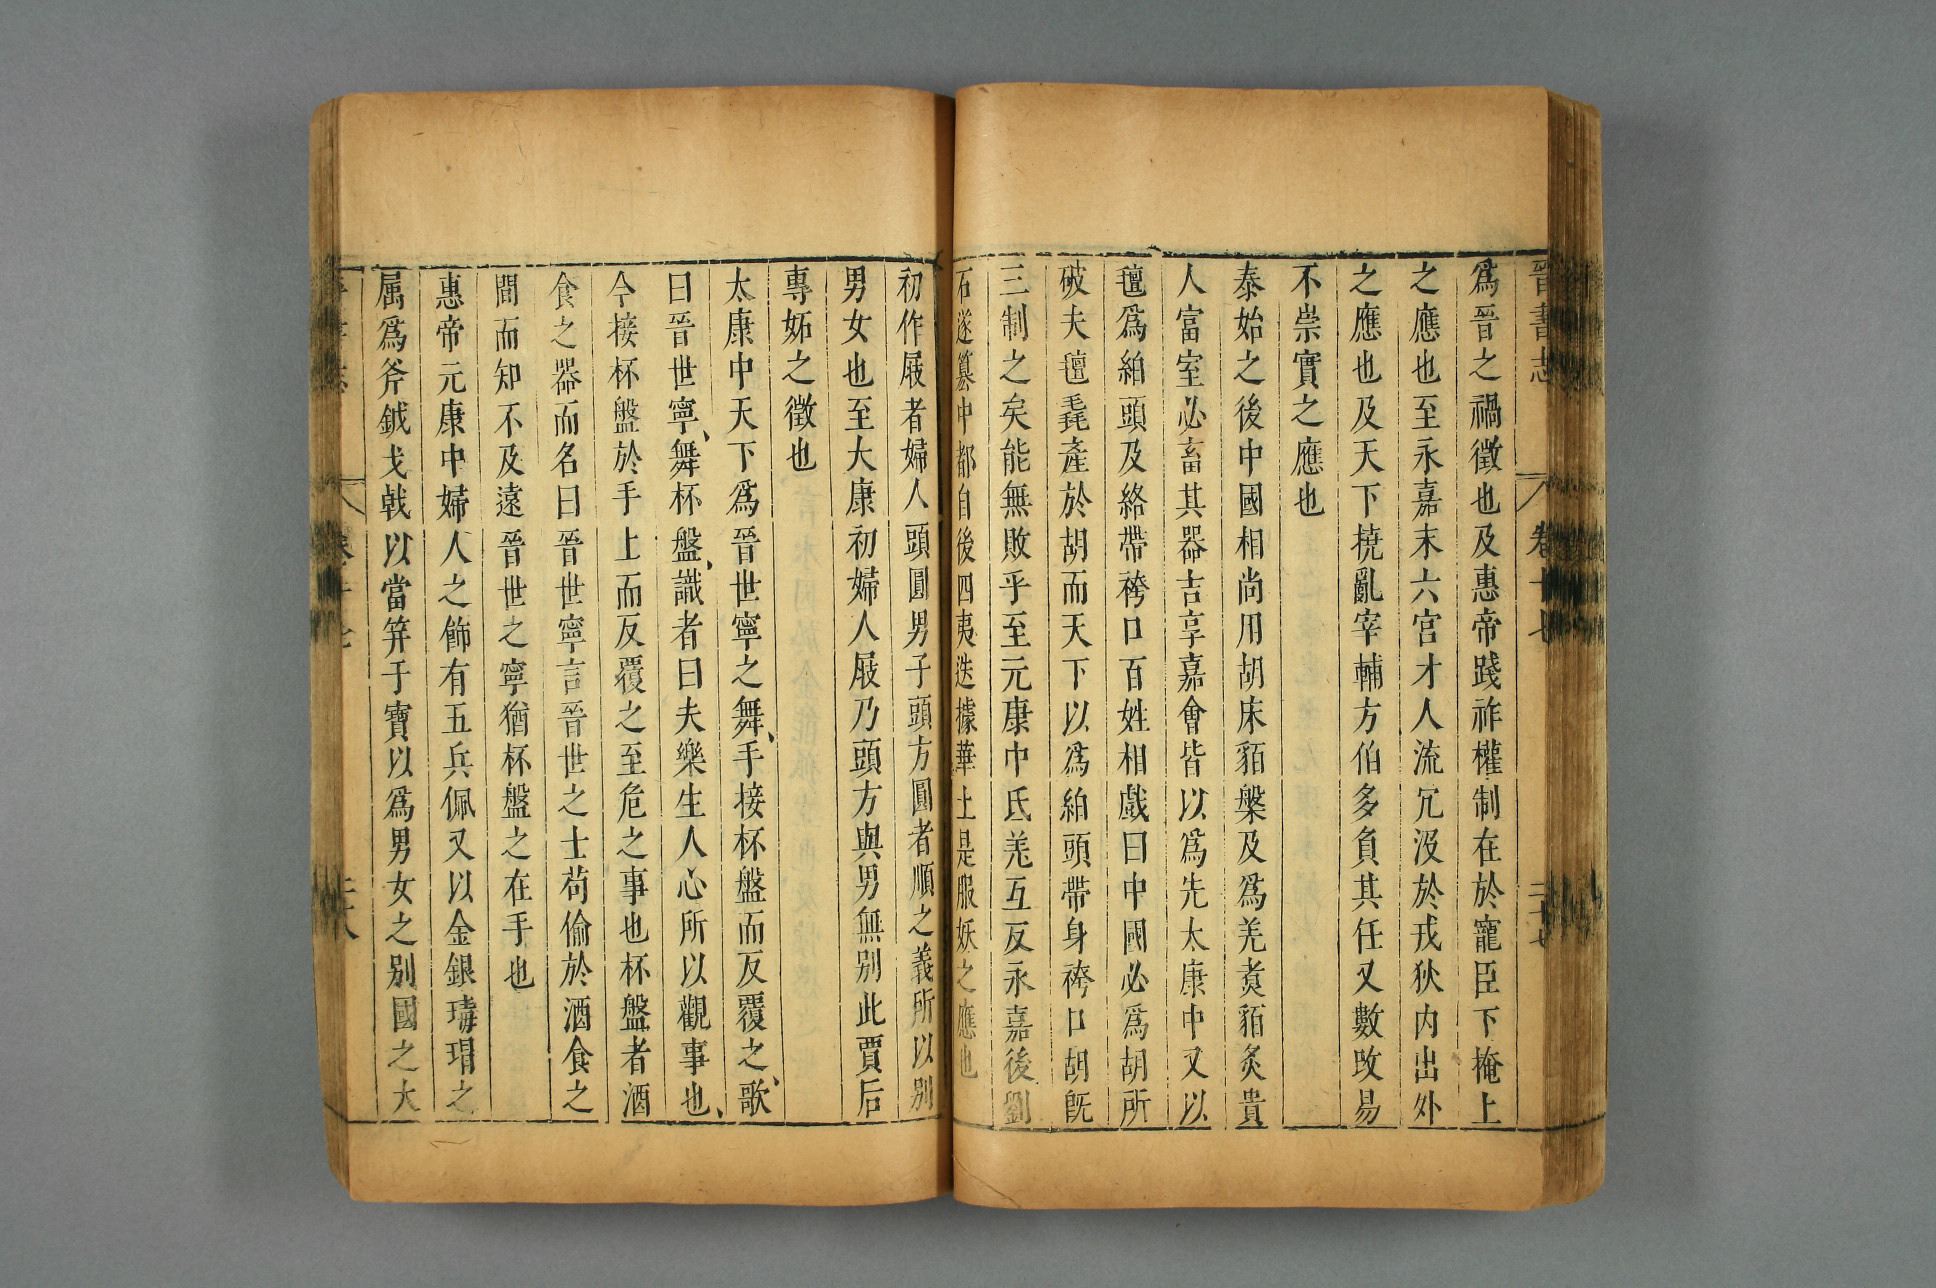 晉書志
卷十七
二十七
爲晉之禍徵也及惠帝踐祚權制在於寵臣下掩上
之應也至永嘉末六宮才人流冗沒於戎狄内出外
之應也及天下撓亂宰輔方伯多負其任又數攺易
不崇實之應也
泰始之後中國相尚用胡床貊槃及爲羌煑貊炙貴
人富室必畜其器吉享嘉會皆以爲先太康中又以
氊爲絈頭及絡帶袴口百姓相戲曰中國必爲胡所
破夫氊毳產於胡而天下以爲絈頭帶身袴口胡旣
三制之矣能無敗乎至元康中氐羌互反永嘉後劉
石遂簒中都自後四夷迭據華土是服妖之應也
初作屐者婦人頭圓男子頭方圓者順之義所以别
男女也至大康初婦人屐乃頭方與男無别此賈后
專妬之徵也
太康中天下爲晉世寧之舞、手接杯盤而反覆之、歌
曰晉世寧、舞杯盤、識者曰夫樂生人心所以觀事也、
今接杯盤於手上而反覆之至危之事也杯盤者酒
食之器而名曰晉世寧言晉世之士苟偷於酒食之
間而知不及遠晉世之寧猶杯盤之在手也
惠帝元康中婦人之飾有五兵佩又以金銀瑇瑁之
屬爲斧鉞戈戟以當笄于寶以爲男女之别國之大